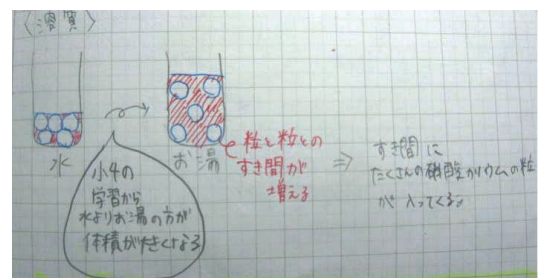 〈溶質〉
水
お湯
小4の
学習から
水よりお湯の方が
体積が大きくなる
粒と粒との
すき間が
増える
⇒
すき間に
たくさんの硝酸カリウムの粒
が入ってくる